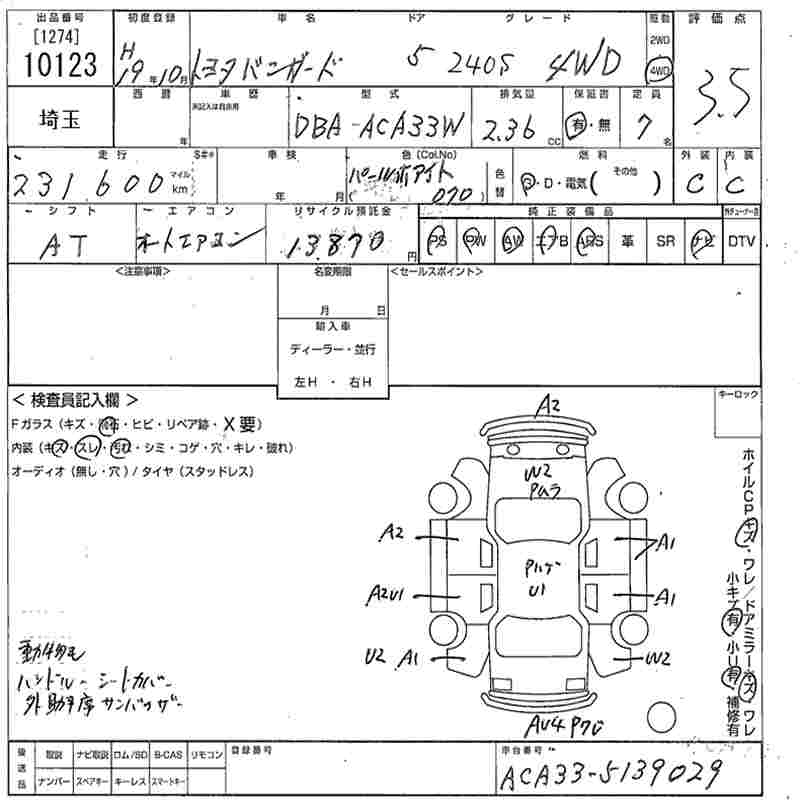 出品番号 初度登録 車名 ドア グレード 駆動 評価点
[1274]
10123 H19年10月 トヨタバンガード 5 240S 4WD 2WD 4WD 3.5
埼玉 西暦 年 車歴 未記入は自家用 型式 DBA-ACA33W 排気量 2.36 CC 保証書 有・無 定員 7名
走行 231600 マイル km S#* 車検 年 月 色(Col.No) パールホワイト (070) 色替 燃料 G・D・電気( その他 ) 外装 C 内装 C
シフト AT エアコン オートエアコン リサイクル預託金 13,870円 純正装備品 PS PW AW エアB ABS 革 SR ナビ DTV
<注意事項> 名変期限 月 日 <セールスポイント>
輸入車
ディーラー・並行
左H ・ 右H
< 検査員記入欄 > キーロック
Fガラス(キズ・飛石・ヒビ・リペア跡・X要)
内装(キズ・スレ・汚れ・シミ・コゲ・穴・キレ・破れ)
オーディオ(無し・穴)/タイヤ(スタッドレス)
A2
W2
Pムラ
A2 A1
Pハゲ
U1
A2U1 A1
U2 A1 W2
AU4
ホイルCPキズ・ワレ/ドアミラーキズ・ワレ
小キズ有・小U有・補修有
動物毛
ハンドル-シートカバー
外助手席サンバイザー
後送品 取説 ナビ取説 ロム/SD B-CAS リモコン 登録番号 車台番号
ナンバー スペアキー キーレス スマートキー ACA33-5139029